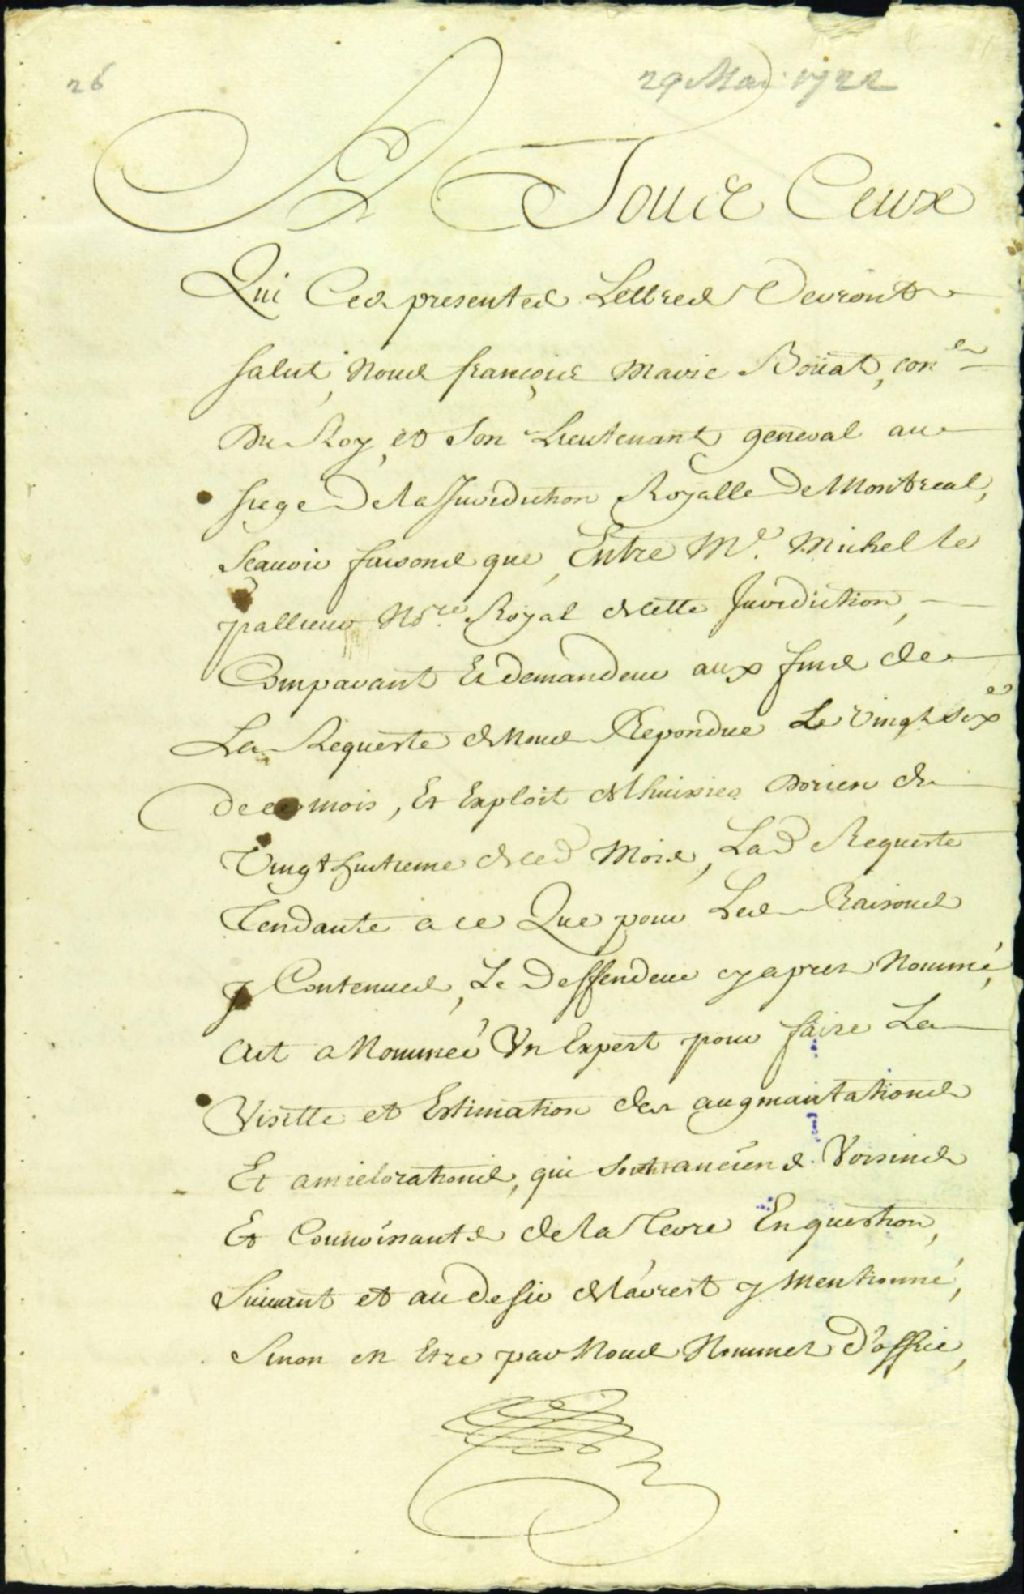 26
29 Mai 1722
A Tous Ceux
Qui Ces presentes Lettres Verront
salut, Nous françois Marie Boüat, con.er
Du Roy, et Son Lieutenant general au
siege De la Jurediction Royalle De Montreal,
Sçavoir faisons que, Entre M.e Michel le
pallieur N.re Royal de Cette Jurediction,
Comparant Et demandeur aux fins de
La Requeste de Nous Repondue Le Vingt six.e
De ce mois, Et Exploit de L'huissier Dorien du
Vingt huitieme de ced Mois, Lad Requeste
Tendante a ce Que pour Les Raisons
y Contenues, Le Deffendeur cy apres Nommé,
Ait a Nommer Un Expert pour faire La
Visitte et Estimation des augmantations
Et amieliorations, qui anciens Voisins
Et Connoissants de la Terre En question,
Suivant et au desir de L'arrest y Mentionné,
Sinon en Etre par Nous Nommer D'office,